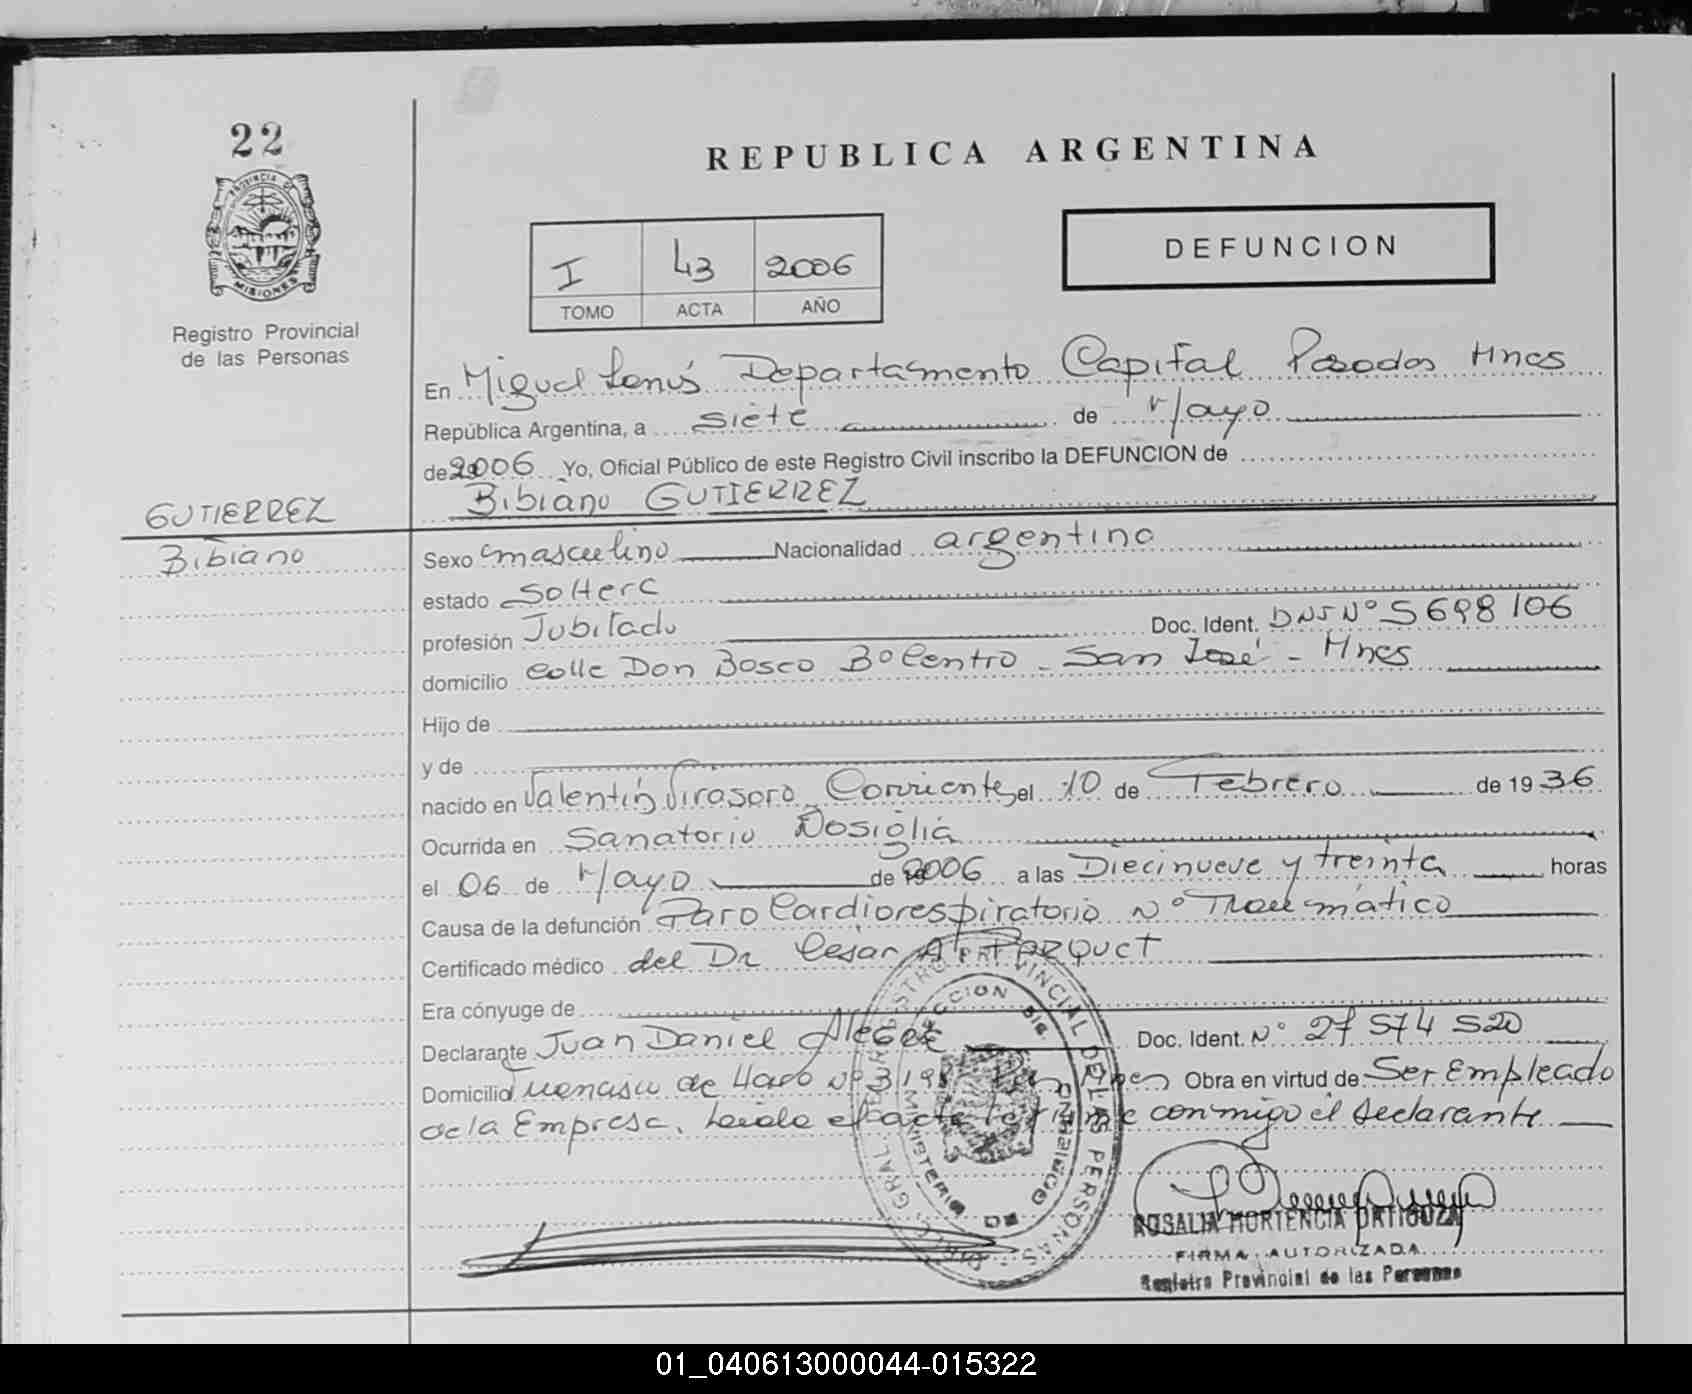 22
PROVINCIA DE
MISIONES
Registro Provincial
de las Personas
REPUBLICA ARGENTINA
I 43 2006
TOMO ACTA AÑO
DEFUNCION
En Miguel Lanús Departamento Capital Posadas Mnes
República Argentina, a siete de Mayo
de 2006 Yo, Oficial Público de este Registro Civil inscribo la DEFUNCION de
Bibiano GUTIERREZ
GUTIERREZ
Bibiano
Sexo masculino Nacionalidad argentino
estado soltero
profesión Jubilado Doc. Ident. DNI Nº 5698106
domicilio calle Don Bosco Bº Centro - San José - Mnes
Hijo de
y de
nacido en Valentín Virasoro Corrientes el 10 de Febrero de 1936
Ocurrida en Sanatorio Nosiglia
el 06 de Mayo de 2006 a las Diecinueve y treinta horas
Causa de la defunción Paro Cardiorespiratorio Nº Traumático
Certificado médico del Dr Cesar A. PARQUET
Era cónyuge de
Declarante Juan Daniel Doc. Ident. Nº 27 574 520
Domicilio de Haro Nº 319 Obra en virtud de Ser Empleado
de la Empresa. Leida el acta conmigo el declarante
REGISTRO PROVINCIAL DE LAS PERSONAS
MINISTERIO DE GOBIERNO
ROSALIA HORTENCIA ORTIGOZA
FIRMA AUTORIZADA
Registro Provincial de las Personas
01_040613000044-015322